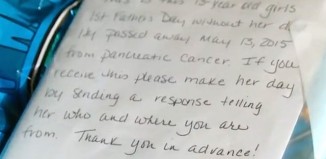 this 15 year old girls
1st Father's Day without her d
passed away May 13, 2015
from pancreatic cancer. If you
receive this please make her day
by sending a response telling
her who and where you are
from. Thank you in advance!